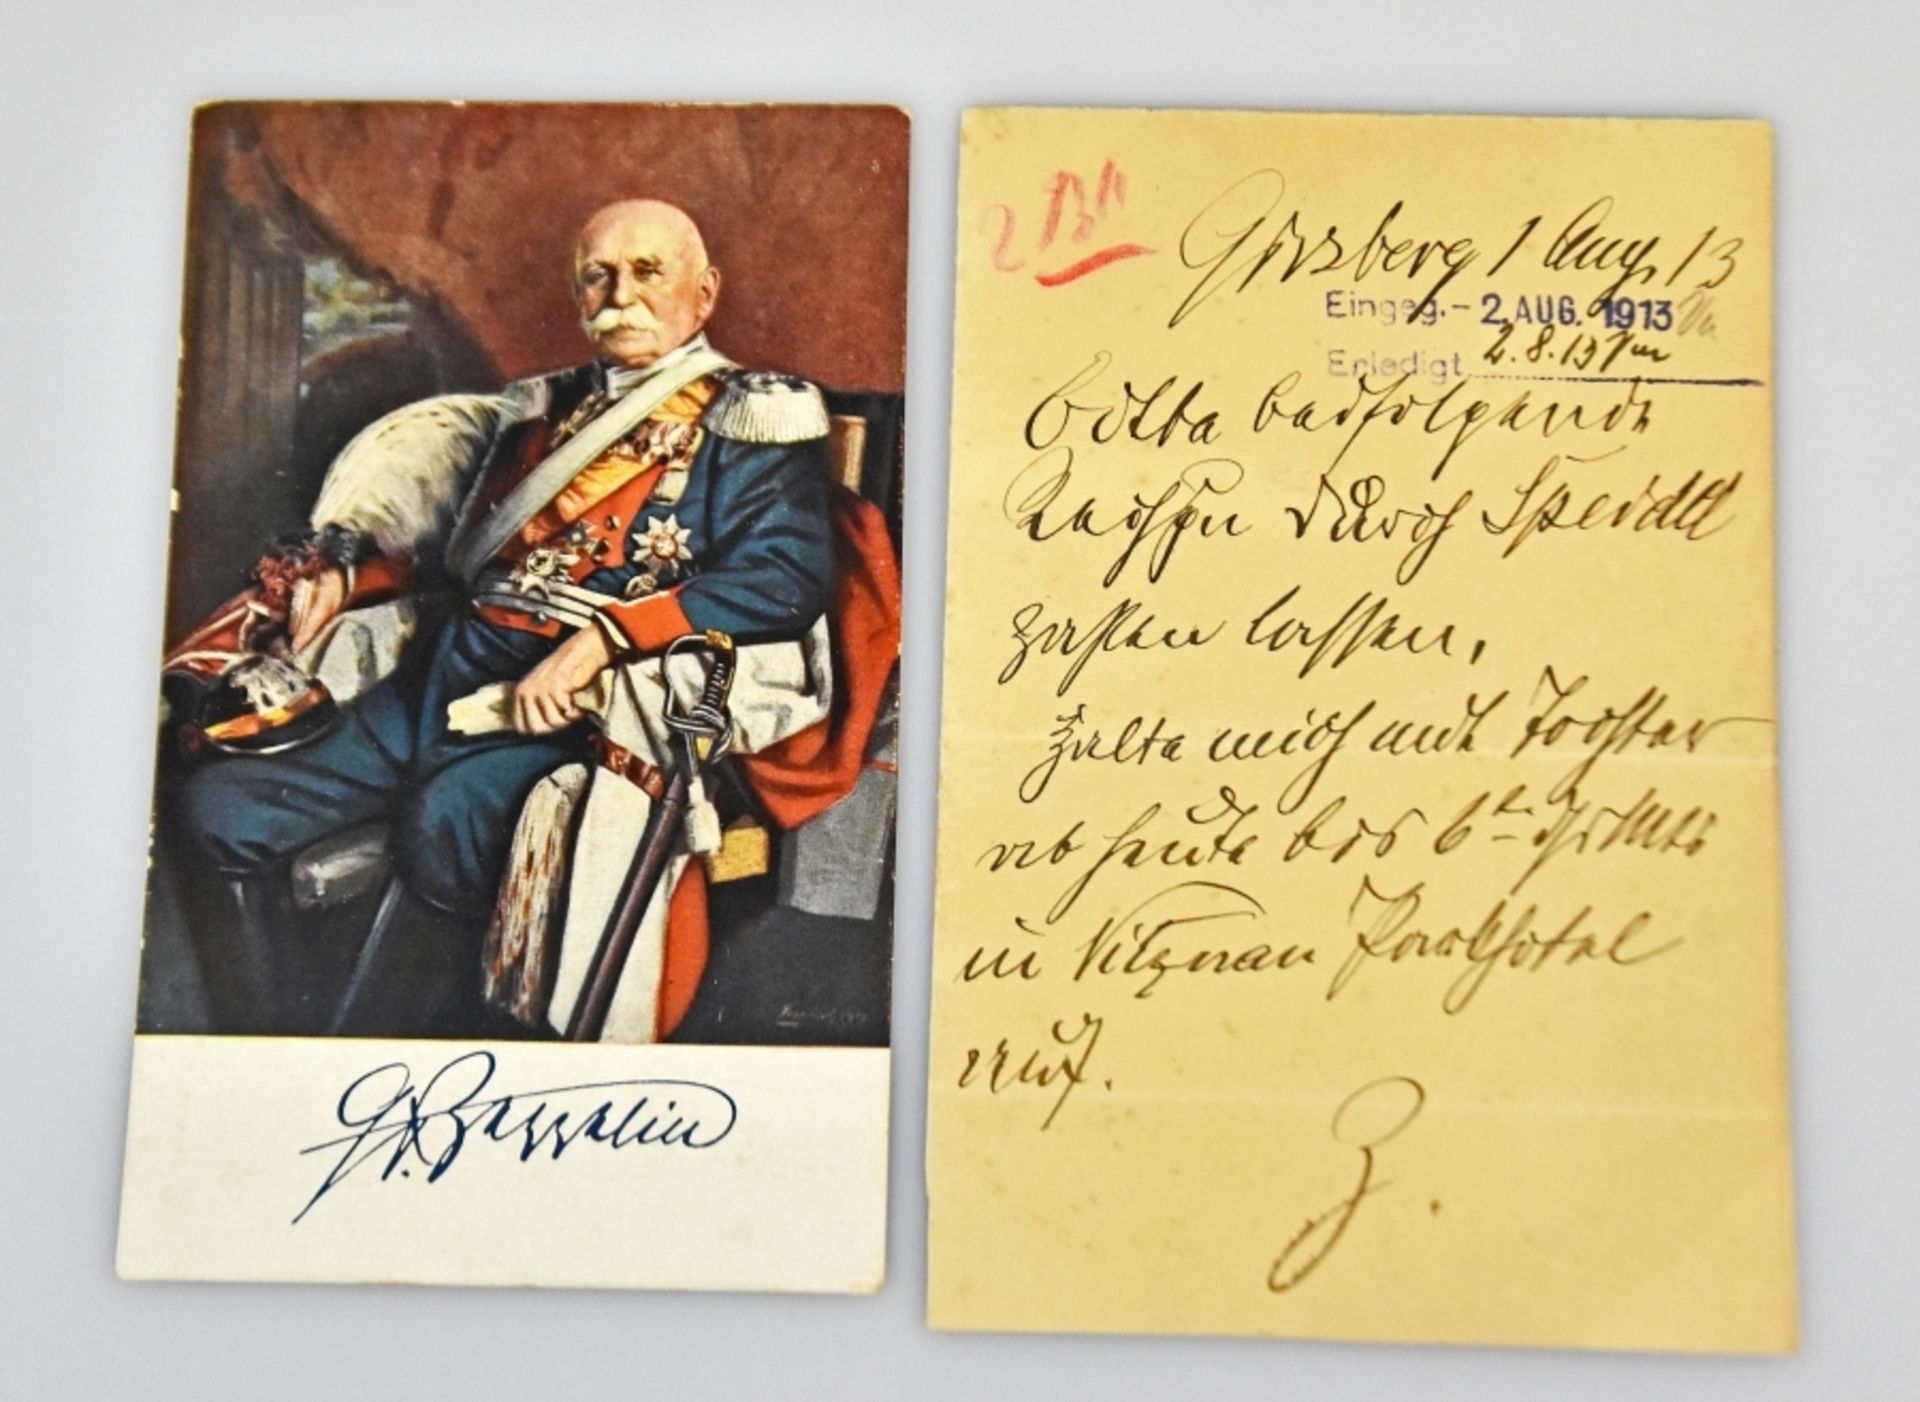 Gf. Zeppelin
Girsberg 1 Aug. 13
Eingeg. - 2. AUG. 1913
Erledigt 2. 8. 13
Bitte beifolgende
durch Speidel
zahlen lassen,
halte mich mit Tochter
ab heute bis 6ten
in Vitznau Parkhotel
auf.
Z.